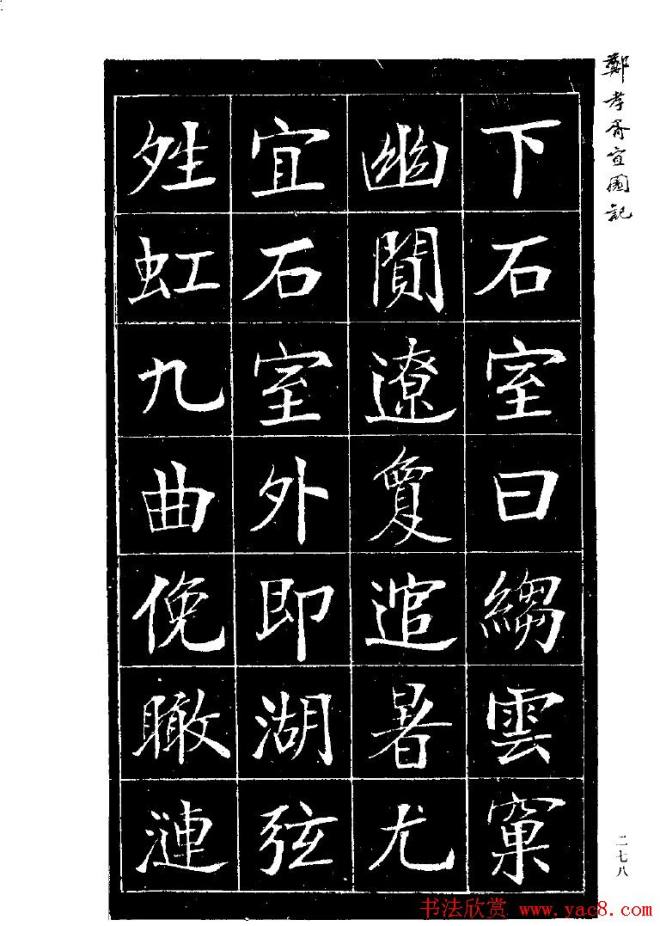 鄭孝胥宜園記
下石室曰縐雲窠
幽闃遼夐逭暑尤
宜石室外即湖弦
夝虹九曲俛瞰漣
二七八
书法欣赏 www.yac8.com